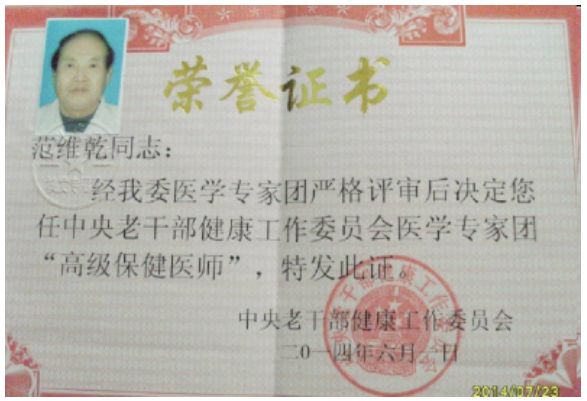 荣誉证书
范维乾同志：
经我委医学专家团严格评审后决定您
任中央老干部健康工作委员会医学专家团
“高级保健医师”，特发此证。
中央老干部健康工作委员会
二0一四年六月一日
2014/07/23